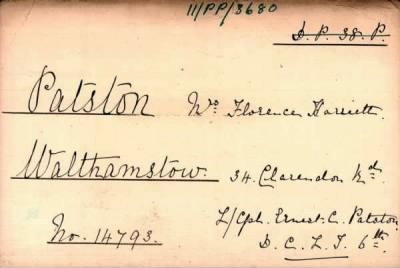 11/PP/3680
D. P. 38. P.
Patston Mrs Florence Harriett.
Walthamstow. 34. Clarendon Rd.
L/Cpl. Ernest. C. Patston.
No. 14793. D. C. L. I. 6th.